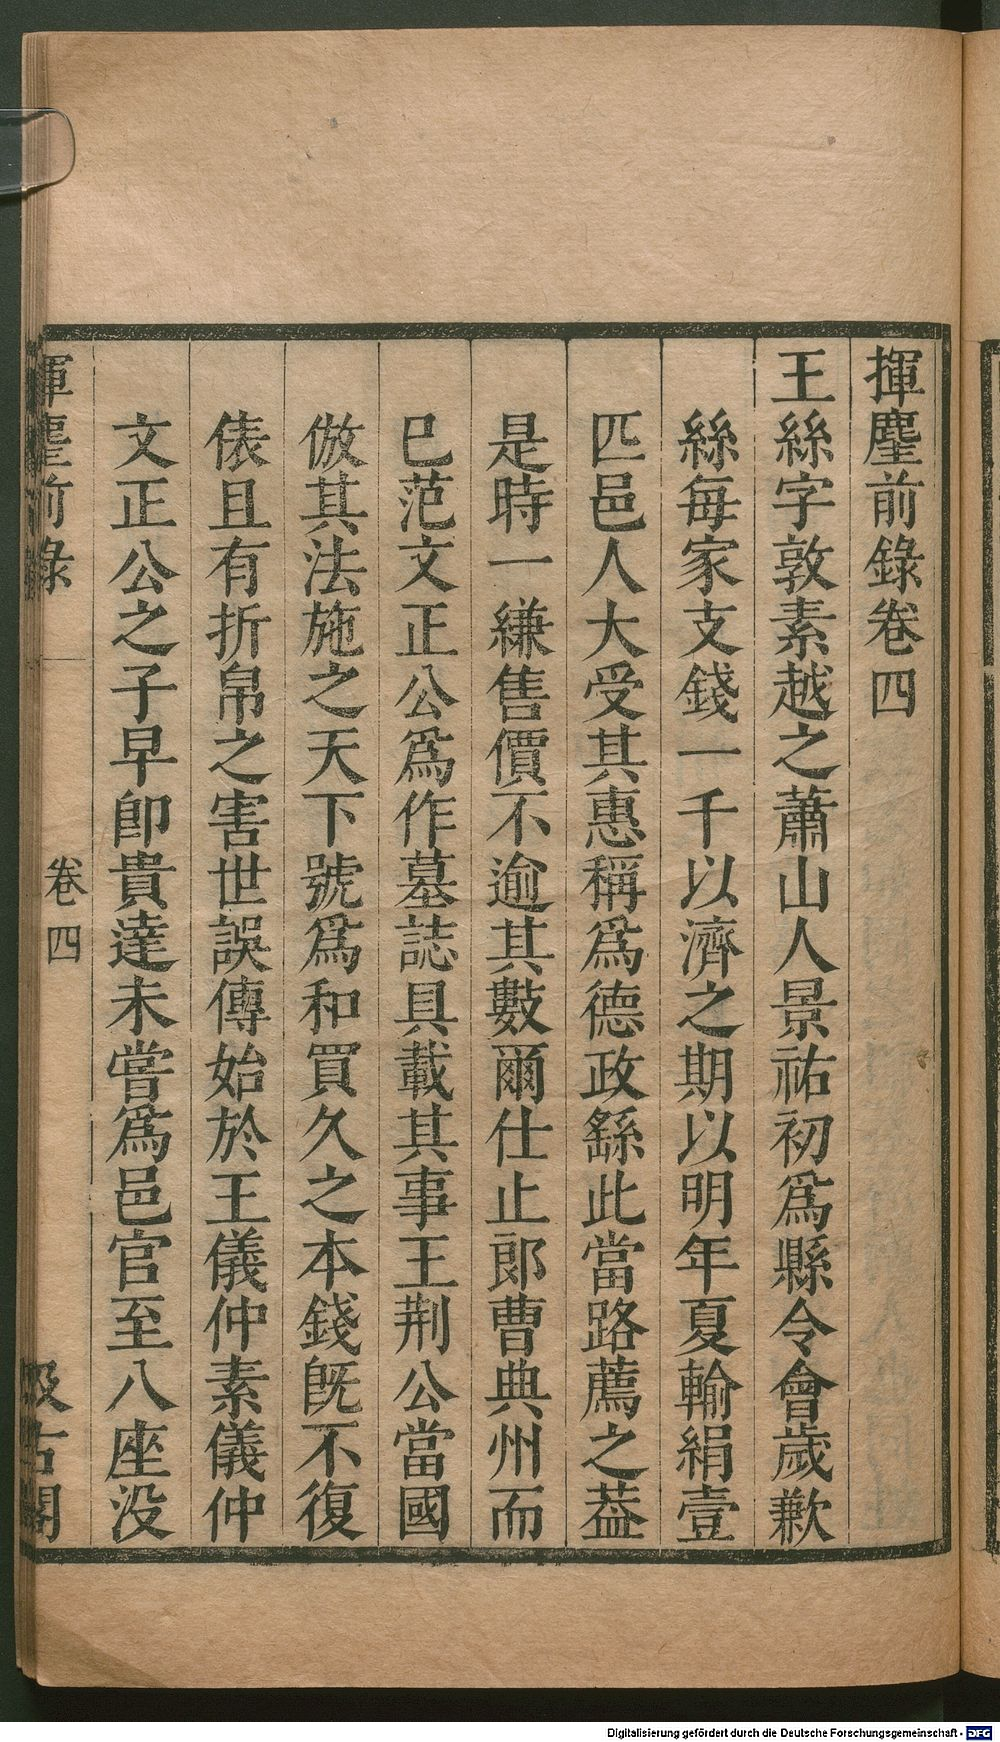 揮麈前錄卷四
王絲字敦素越之蕭山人景祐初爲縣令會歲歉
絲每家支錢一千以濟之期以明年夏輸絹壹
匹邑人大受其惠稱爲德政繇此當路薦之葢
是時一縑售價不逾其數爾仕止郞曹典州而
已范文正公爲作墓誌具載其事王荆公當國
倣其法施之天下號爲和買久之本錢旣不復
俵且有折帛之害世誤傳始於王儀仲素儀仲
文正公之子早卽貴達未嘗爲邑官至八座没
揮麈前錄 卷四 汲古閣
Digitalisierung gefördert durch die Deutsche Forschungsgemeinschaft - DFG